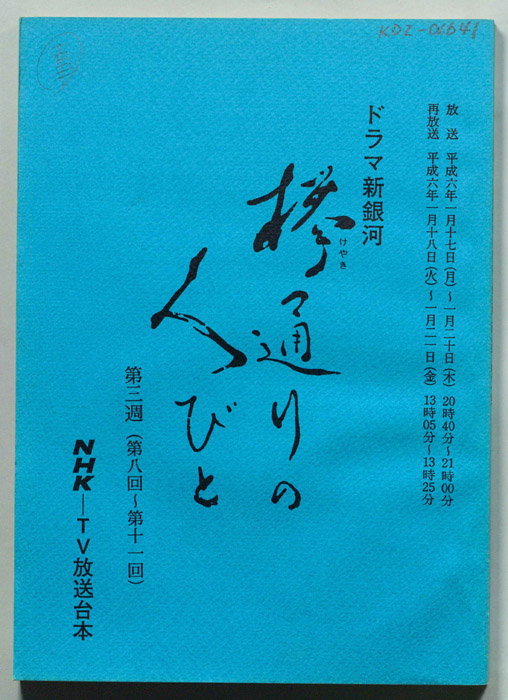 KDZ-06641
放　送　平成六年一月十七日(月)～一月二十日(木)　20時40分～21時00分
再放送　平成六年一月十八日(火)～一月二一日(金)　13時05分～13時25分
ドラマ新銀河
欅通りの
けやき
人びと
第三週(第八回～第十一回)
NHK―TV放送台本